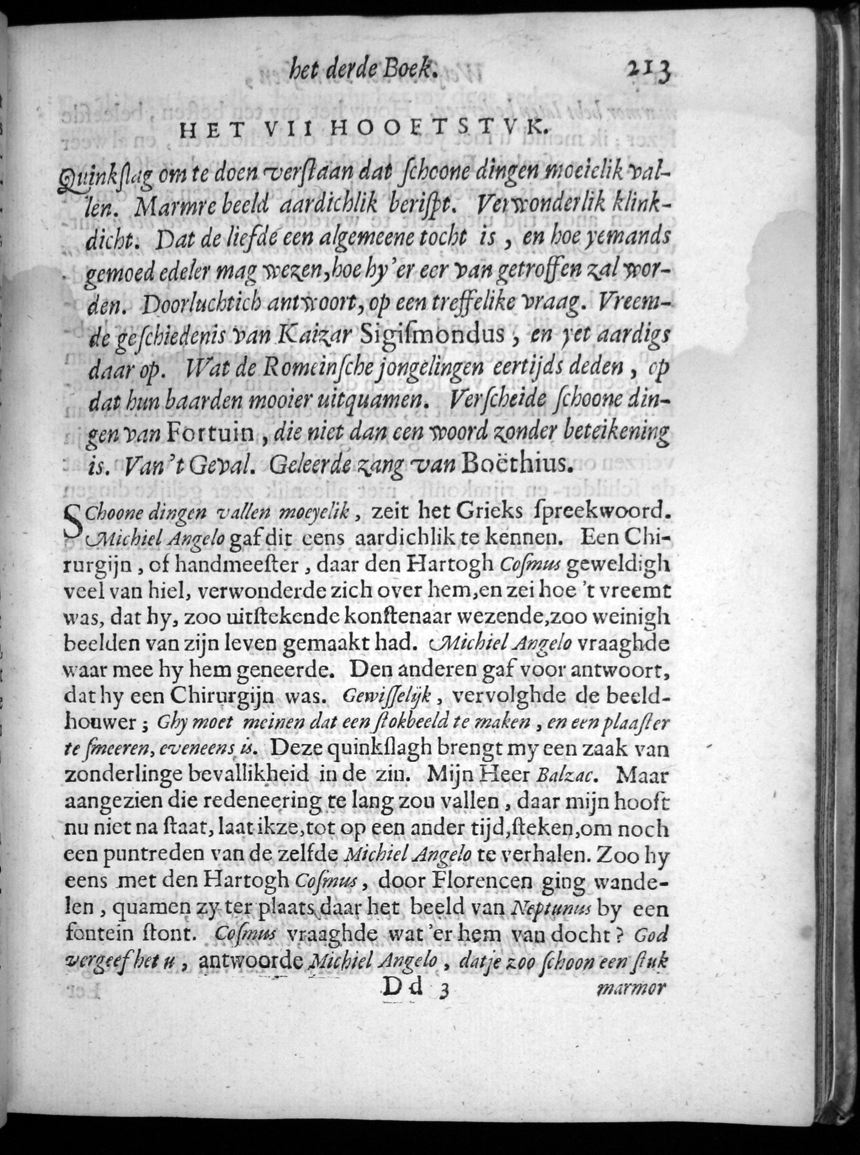 het derde Boek. 213
HET VII HOOFTSTVK.
Quinkſlag om te doen verſtaan dat ſchoone dingen moeielik val-
len. Marmre beeld aardichlik beriſpt. Verwonderlik klink-
dicht. Dat de liefde een algemeene tocht is, en hoe yemands
gemoed edeler mag wezen, hoe hy 'er eer van getroffen zal wor-
den. Doorluchtich antwoort, op een treffelike vraag. Vreem-
de geſchiedenis van Kaizar Sigiſmondus, en yet aardigs
daar op. Wat de Romeinſche jongelingen eertijds deden, op
dat hun baarden mooier uitquamen. Verſcheide ſchoone din-
gen van Fortuin, die niet dan een woord zonder beteikening
is. Van 't Geval. Geleerde zang van Boëthius.
SChoone dingen vallen moeyelik, zeit het Grieks ſpreekwoord.
Michiel Angelo gaf dit eens aardichlik te kennen. Een Chi-
rurgijn, of handmeeſter, daar den Hartogh Coſmus geweldigh
veel van hiel, verwonderde zich over hem, en zei hoe 't vreemt
was, dat hy, zoo uitſtekende konſtenaar wezende, zoo weinigh
beelden van zijn leven gemaakt had. Michiel Angelo vraaghde
waar mee hy hem geneerde. Den anderen gaf voor antwoort,
dat hy een Chirurgijn was. Gewiſſelijk, vervolghde de beeld-
houwer; Ghy moet meinen dat een ſtokbeeld te maken, en een plaaſter
te ſmeeren, eveneens is. Deze quinkſlagh brengt my een zaak van
zonderlinge bevallikheid in de zin. Mijn Heer Balzac. Maar
aangezien die redeneering te lang zou vallen, daar mijn hooft
nu niet na ſtaat, laat ikze, tot op een ander tijd, ſteken, om noch
een puntreden van de zelfde Michiel Angelo te verhalen. Zoo hy
eens met den Hartogh Coſmus, door Florencen ging wande-
len, quamen zy ter plaats daar het beeld van Neptunus by een
fontein ſtont. Coſmus vraaghde wat 'er hem van docht? God
vergeef het u, antwoorde Michiel Angelo, datje zoo ſchoon een ſtuk
Dd 3 marmor